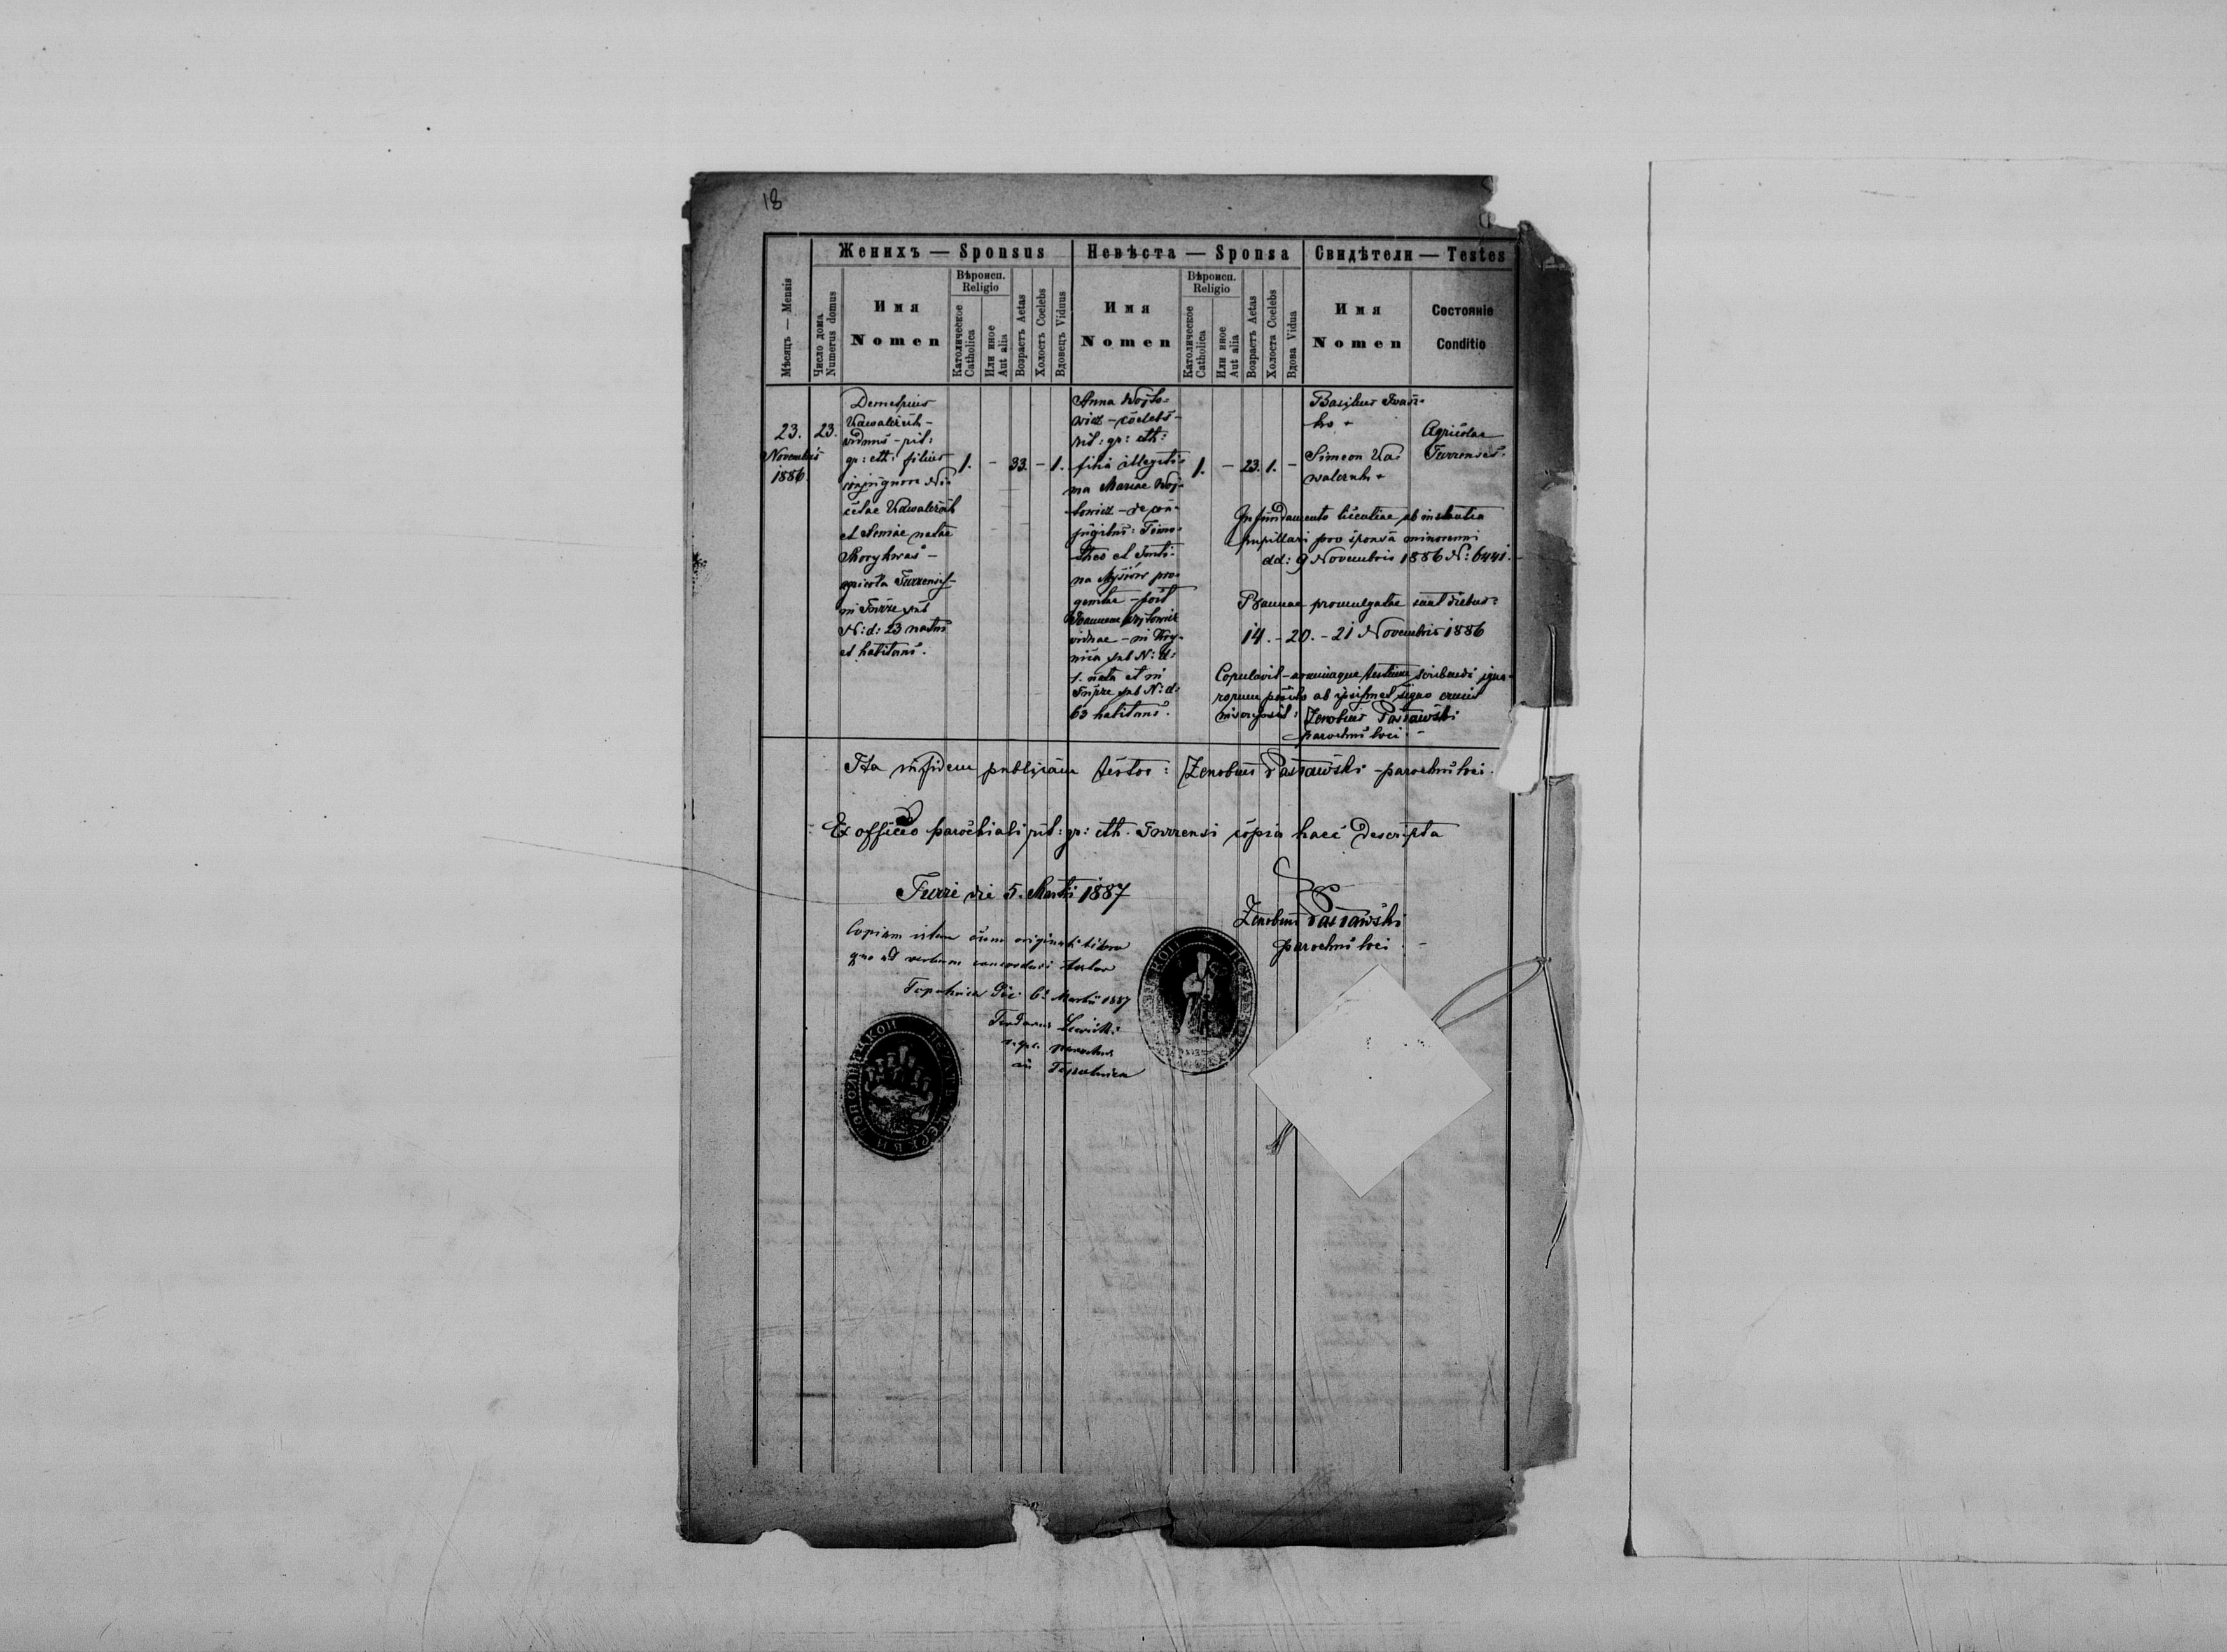 18
Женихъ — Sponsus
Невѣста — Sponsa
Свидѣтели — Testes
Мѣсяцъ — Mensis
Число дома
Numerus domus
Имя
Nomen
Вѣроисп.
Religio
Католическое
Catholica
Или иное
Aut alia
Возрастъ Aetas
Холостъ Coelebs
Вдовецъ Viduus
Имя
Nomen
Вѣроисп.
Religio
Католическое
Catholica
Или иное
Aut alia
Возрастъ Aetas
Холоста Coelebs
Вдова Vidua
Имя
Nomen
Состоянiе
Conditio
23.
Novembris
1886.
23.
Demetrius
Kawalczuk –
viduus – rit:
gr: cth: filius
conjugum Ni-
cetae Kawalczuk
et Xeniae natae
–
agricola Turzensis –
in Turze sub
N: d: 23 natus
et habitans.
1.
–
33.
–
1.
Anna Wojto-
wicz – coelebs –
rit: gr: cth:
filia illegiti-
ma Mariae Woj-
towicz – de con-
jugibus: Timo-
theo et
na pro-
genitae – post
Joannem Wojtowicz
viduae – in
sub N: d:
1. nata et in
Turze sub N: d:
63 habitans.
1.
–
23.
1.
–
Basilius Iwasz-
ko +
Simeon Ka-
walczuk +
Agricolae
Turzenses.
In fundamento licentiae ab instantia
pupillari pro sponsa minorenni
dd: 9 Novembris 1886 N: 6441. –
Bannae promulgatae sunt diebus:
14. – 20. – 21 Novembris 1886
Copulavit – nominaque testium scribendi igna-
rorum posito ab ipsismet signo crucis
inscripsit: Zenobius Pasławski
parochus loci. –
Ita in fidem publicam testor: Zenobius Pasławski – parochus loci.
Ex officio parochiali rit: gr: cth. Turzensi copia haec descripta
Turze die 5. Martii 1887
Zenobius Pasławski
parochus loci. –
Copiam istam cum originali libro
quo ad verbum concordari testor
Topolnica die 6. Martii 1887
Lewicki
parochus
in Topolnica